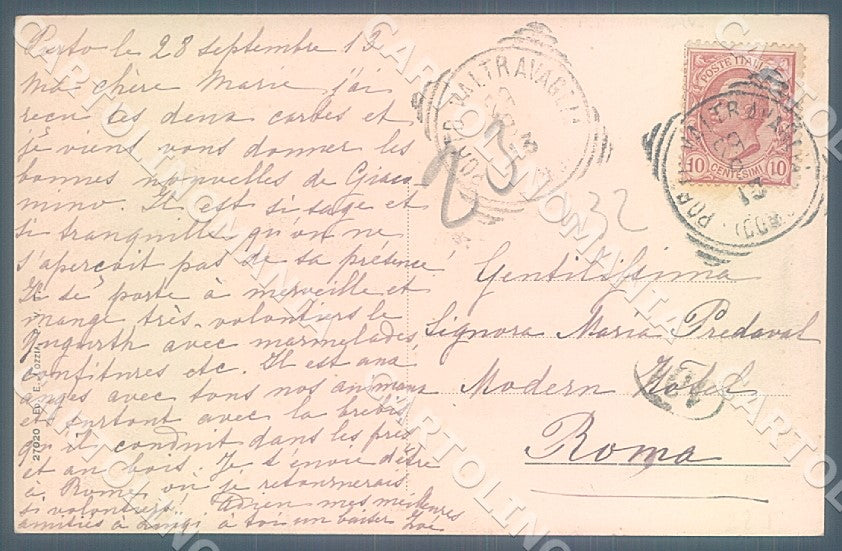 Porto le 28 septembre 13
Ma chère Marie j'ai
reçu tes deux cartes et
je viens vous donner les
bonnes nouvelles de Giaco
mino. Il est si sage et
si tranquille qu'on ne
s'aperçoit pas de sa présence
Il se porte à merveille et
mange très volontiers le
Yogurth avec marmelades,
confitures etc. Il est aux
anges avec tous nos animaux
et surtout avec la brebis
qu'il conduit dans les prés
et au bois. Je t'envie d'être
à Rome, où je retournerais
si volontiers! Adieu mes meilleures
amitiés à Luigi, à toi un baiser Zoé
27020 ED. E.
PORTO VALTRAVAGLIA
23
32
POSTE ITALIANE
10 CENTESIMI 10
PORTO VALTRAVAGLIA (COMO)
13
Gentilissima
Signora Maria Predaval
Modern Hôtel
Roma
CARTOLINOMANIA